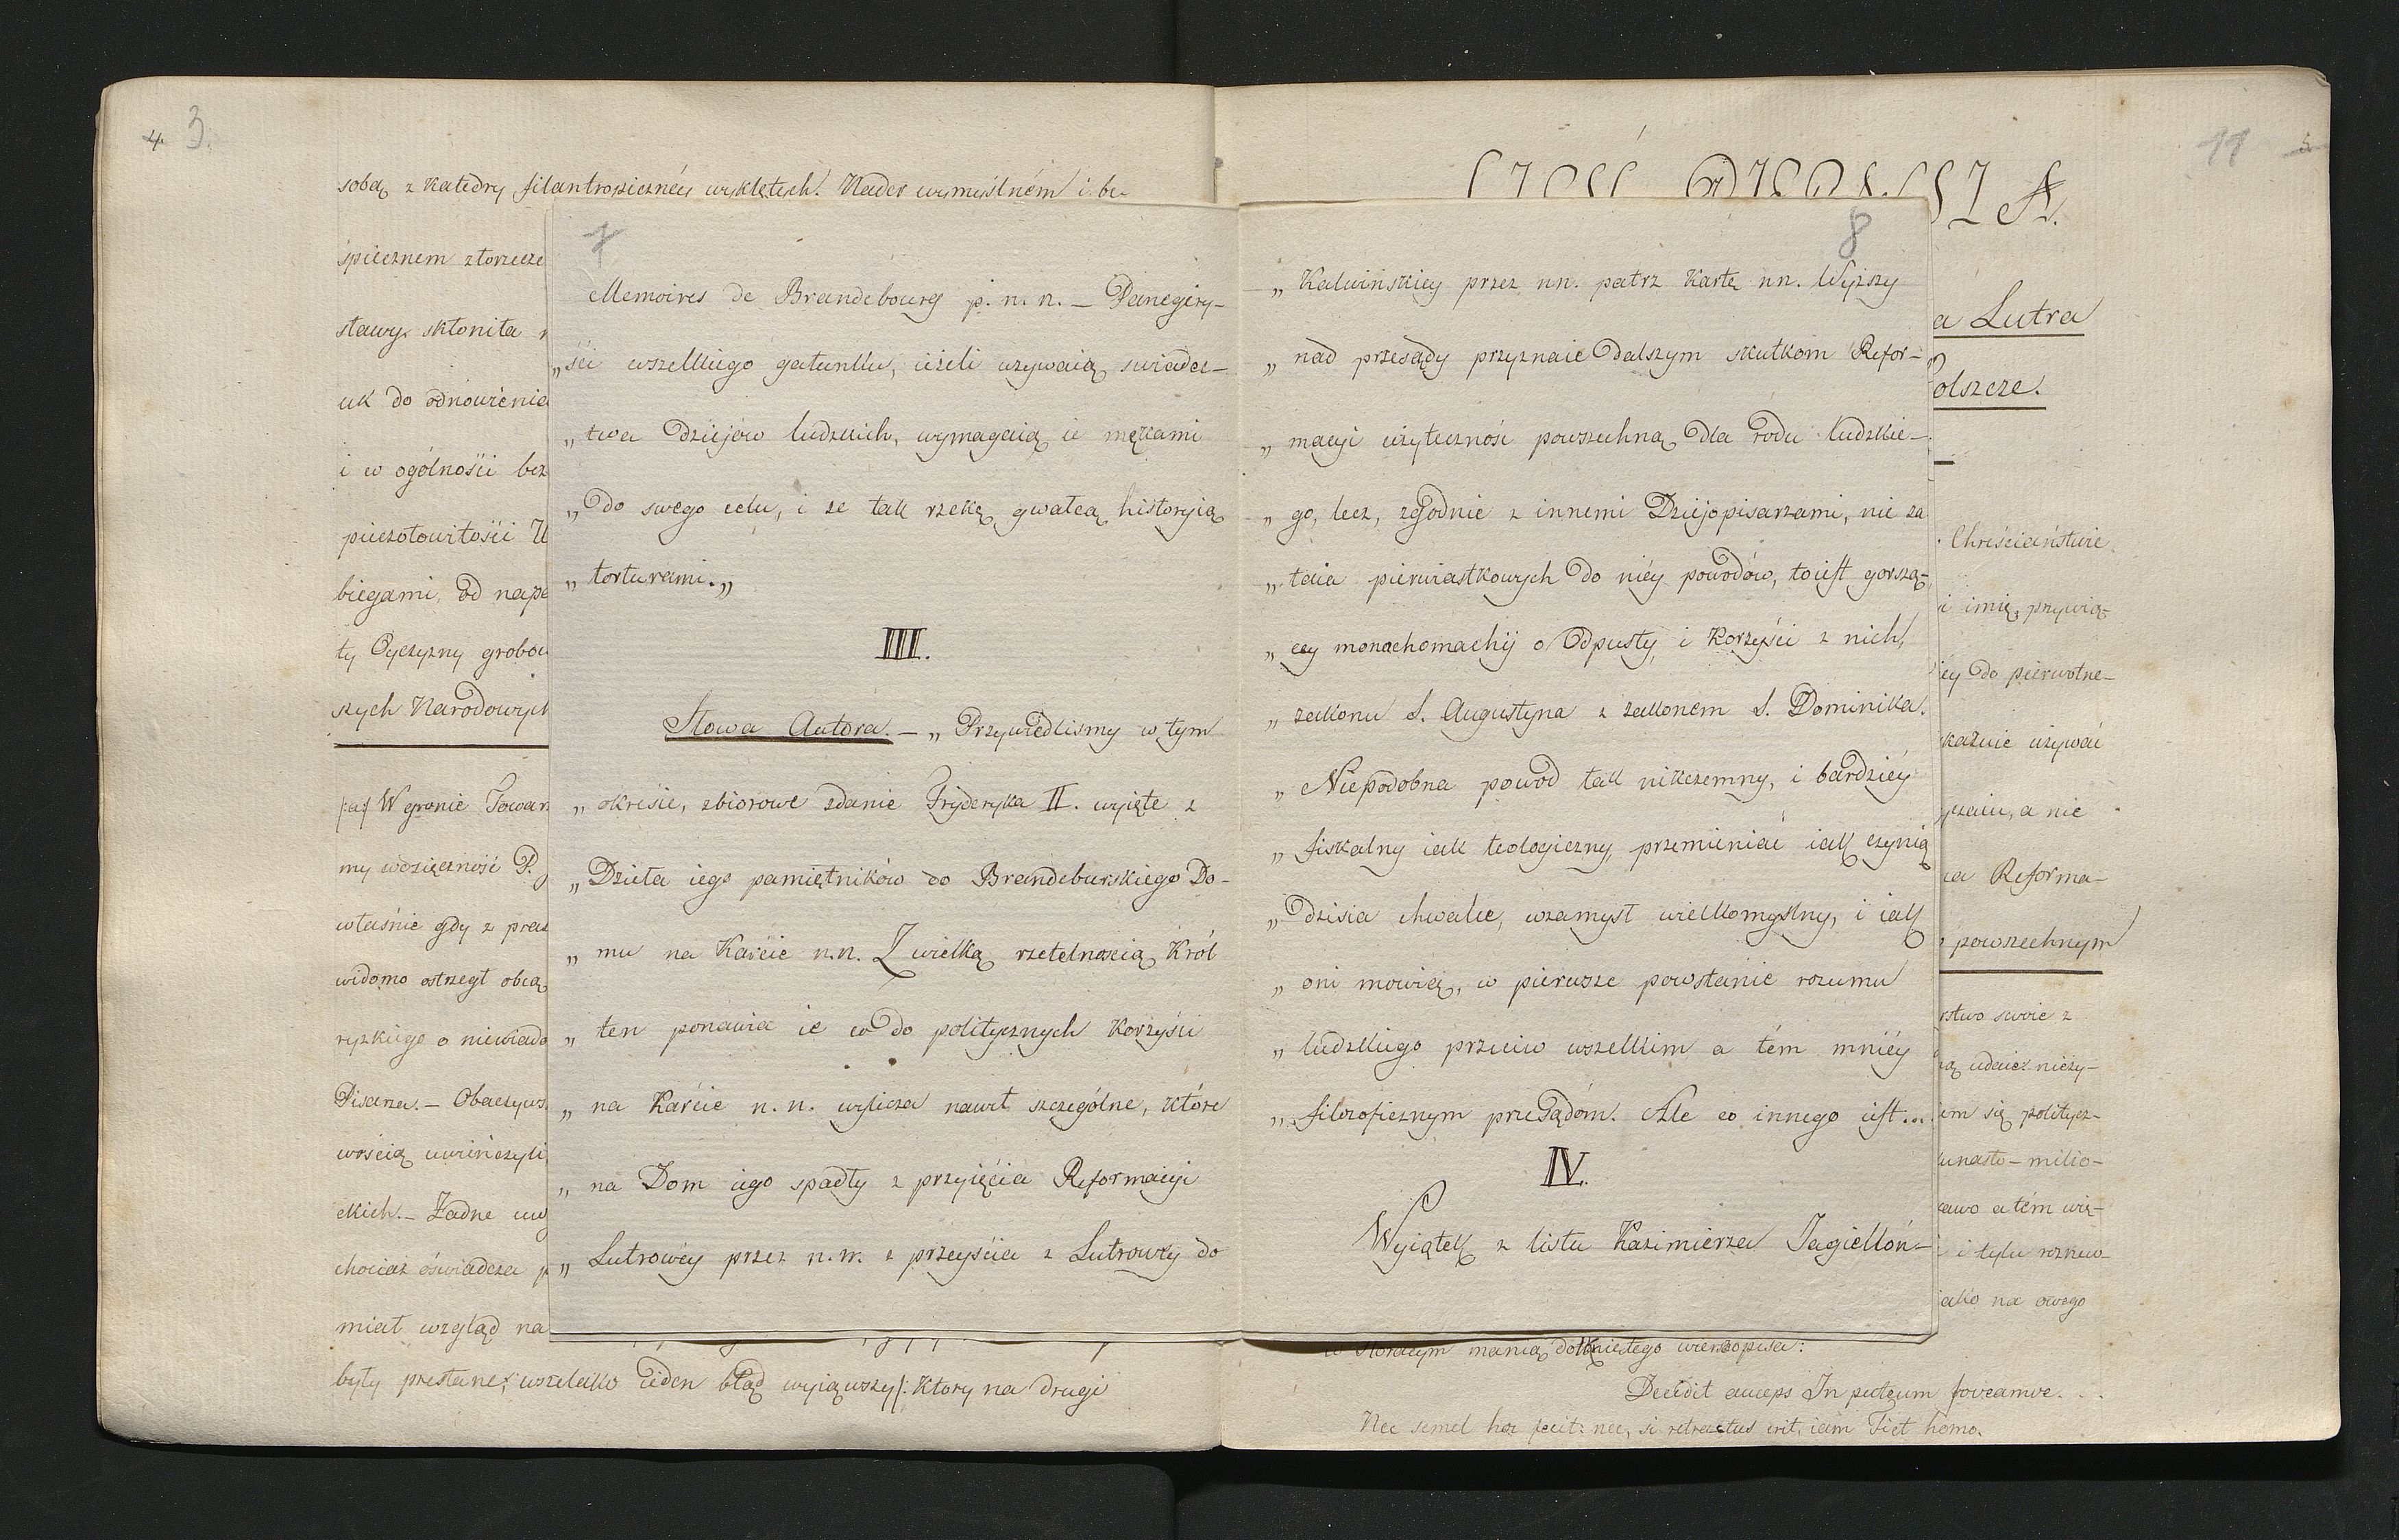 4. 3.
sobą z Katedry filantropicznéy wyklętych. Nader wymyślném i be-
śpiecznem złorzecze
sławy skłoniła
uk do odnowienia
i w ogólności bez
pieczołowitości U
biegami, od nape
ty Oyczyzny grobow
szych Narodowych
/:a:/ W gronie Towar
my wdzięczność P.
właśnie gdy z pras
widomo ostrzegł obcą
ryzkiego o niewiado
Pisana.— Obaczyws
wością uwieńczyli
ckich.— Żadne uw
chociaż oświadcza p
miał wzgląd na
były przesłane; wszelako ieden błąd wyiąwszy /: Ktory na drugi
7
Memoires de Brandebourg p. n. n. — Panegiry-
„ści wszelkiego gatunku, ieżeli używaią swiadec-
„twa Dziejow ludzkich, wymagaią ie mękami
„Do swego celu, i że tak rzekę gwałcą historyią
„torturami.„
III.
Słowa Autora. — „Przywiedlismy w tym
„okresie, zbiorowe zdanie Fryderyka II. wyięte z
„Dzieła iego pamiętników do Brandeburskiego Do-
„mu na Karcie n.n. Z wielką rzetelnością Król
„ten ponawia ie co do politycznych Korzyści
„na Karcie n. n. wylicza nawet szczególne, które
„na Dom iego spadły z przyięcia Reformacyi
„Lutrowéy przez n.n. z przeyścia z Lutrowéy do
8
„Kalwińskiey przez nn. patrz Kartę nn. Wyższy
„nad przesądy przyznaie Dalszym skutkom Refor-
„macyi użyteczność powszechną dla rodu ludzkie-
„go, lecz, zgodnie z innemi Dziejopisarzami, nie za
„taia pierwiastkowych do niéy powodów, toiest gorszą-
„cey monachomachij o Odpusty i Korzyści z nich,
„zakonu S. Augustyna z zakonem S. Dominika.
„Niepodobna powod tak nikczemny, i bardziéy
„fiskalny iak teologiczny, przemieniać iak czynią
„Dzisia chwalce, wzamysł wielkomyslny, i iak
„oni mowią, w pierwsze powstanie rozumu
„ludzkiego przeciw wszelkim a tém mniéy
„filozoficznym przesądóm. Ale co innego iest...
IV.
Wyiątek z listu Kazimierza Jagielloń-
11 5
SZA.
a Lutra
olszcze.
Chrześciaństwie
i imię przywią-
iey do pierwotne-
każnie używać
yczaiu, a nie
ca Reforma-
powszechnym
rstwo swoie z
ią udaiesz nieży-
em się politycz-
unasto-milio-
cawo a tém wię-
i tylu roznow-
iako na owego
manią dotkniętego wierszopisa:
Decidit auceps In puteum foveamve. . .
Nec semel hoc fecit: nec, si retractus erit, iam Fiet homo.